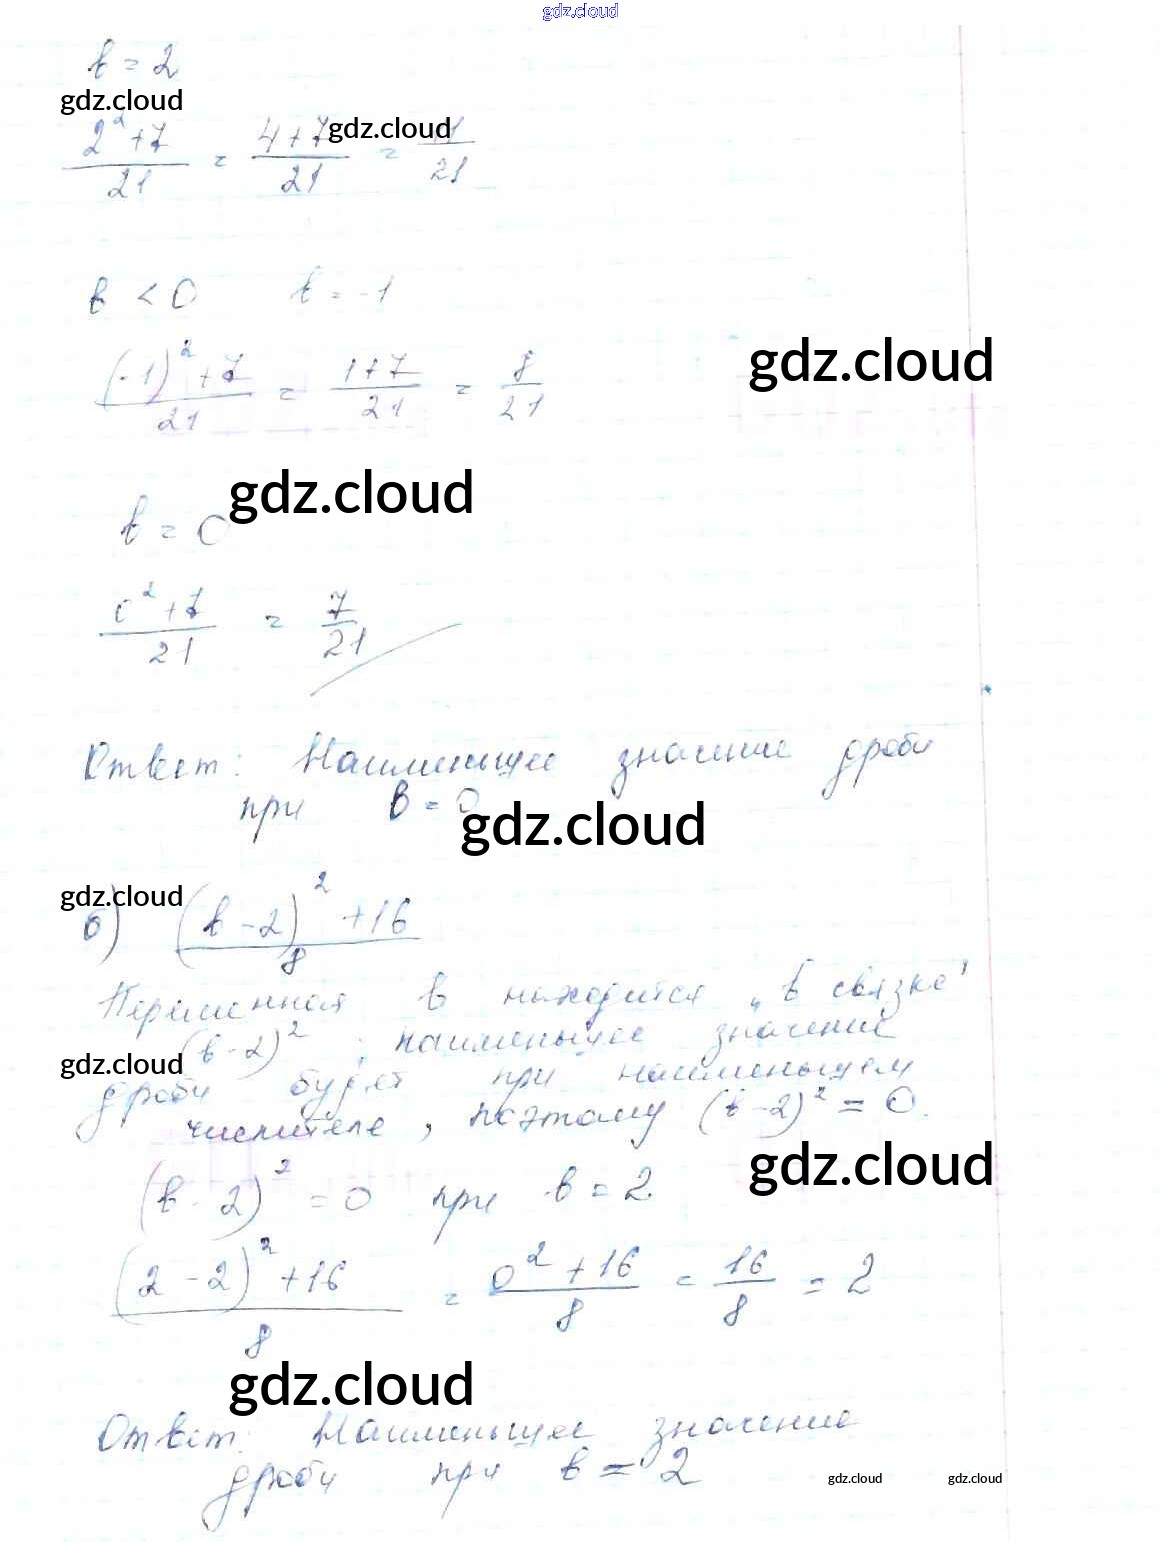 gdz.cloud
b = 2
gdz.cloud
(2² + 7)/21 = (4 + 7)/21 = 11/21
gdz.cloud
b < 0    b = -1
((-1)² + 7)/21 = (1 + 7)/21 = 8/21
gdz.cloud
gdz.cloud
b = 0
(0² + 7)/21 = 7/21
Ответ: Наименьшее значение дроби
при b = 0
gdz.cloud
gdz.cloud
б) ((b - 2)² + 16)/8
Переменная b находится „в связке"
(b - 2)²; наименьшее значение
gdz.cloud
дроби будет при наименьшем
числителе, поэтому (b - 2)² = 0.
gdz.cloud
(b - 2)² = 0 при b = 2.
((2 - 2)² + 16)/8 = (0² + 16)/8 = 16/8 = 2
gdz.cloud
Ответ: Наименьшее значение
дроби при b = 2
gdz.cloud gdz.cloud